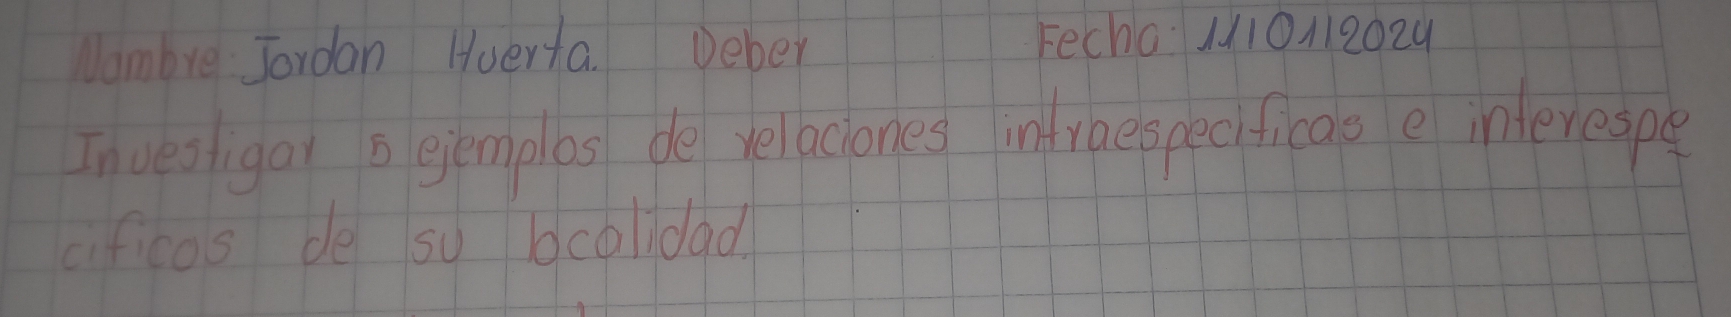 Nombre: Jordan Huerta. Deber Fecha: 11/01/2024
Investigar 5 ejemplos de relaciones intraespecificas e interespe
cificas de su localidad.